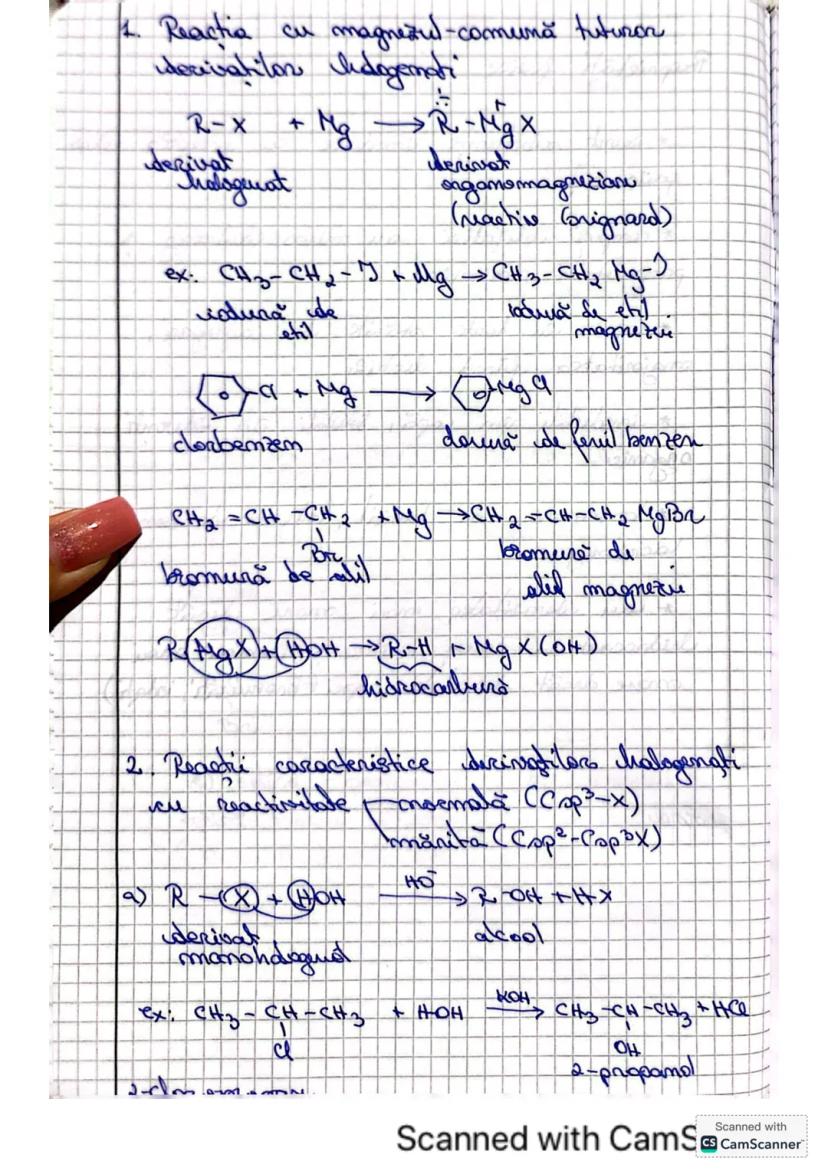 1. Reacția cu magneziul-comună tuturor
derivaților halogenați
R-X + Mg → R-MgX
derivat halogenat
derivat organomagnezian
(reactiv Grignard)
ex: CH3-CH2-I + Mg → CH3-CH2 Mg-I
iodură de etil
iodură de etil magneziu
Cl + Mg → MgCl
clorbenzen
clorură de fenil benzen
CH2=CH-CH2 + Mg → CH2=CH-CH2 MgBr
Br
bromură de alil
bromură de alil magneziu
R MgX + HOH → R-H + MgX(OH)
hidrocarbură
2. Reacții caracteristice derivaților halogenați
cu reactivitate normală (Csp3-X)
mărită (Csp2-Csp3X)
a) R-X + HOH HO- → R-OH + HX
derivat monohalogenat
alcool
ex: CH3-CH-CH3 + HOH KOH → CH3-CH-CH3 + HCl
Cl
OH
2-propanol
Scanned with CamS
Scanned with
CS CamScanner